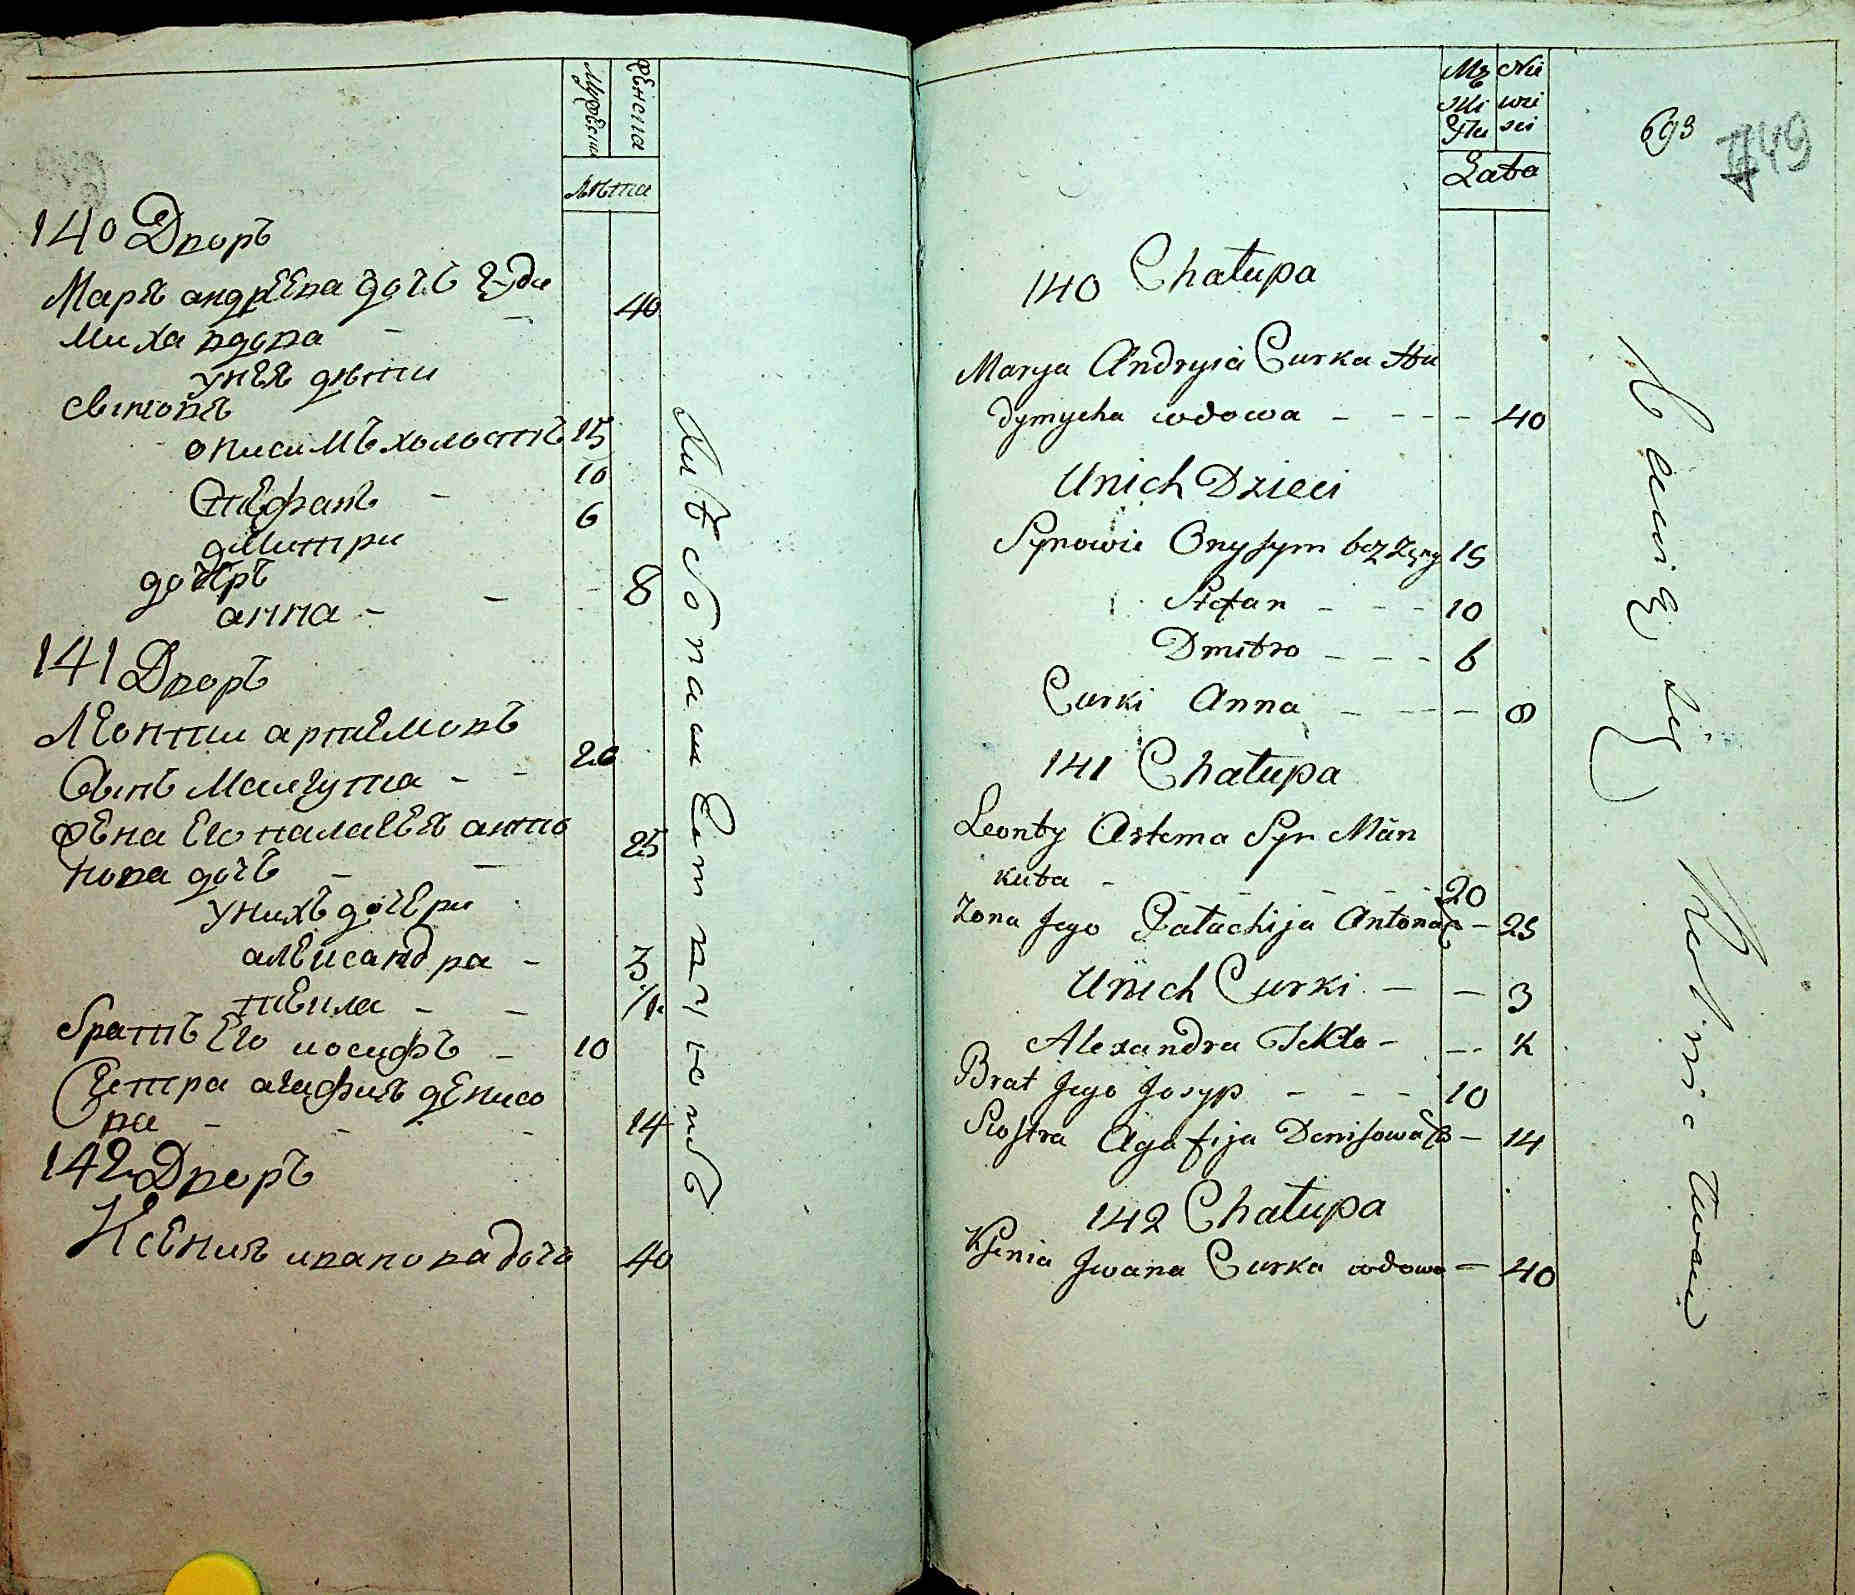 Мужеска
женска
лѣта
140 Дворъ
Маря андрѣева дочь Гуди
миха вдова - - 40
у нея дѣти
Сыновя
онисимъ холостъ 15
Стефанъ - 10
димитри 6
дочерь
анна - - 8
141 Дворъ
Леонтии артемовъ
Сынъ Манкута - - 20
жена Его палагея анто
нова дочь - - 25
у нихъ дочери
алеисандра - 3
текла - -
братъ Его иосифъ - 10
Сестра агафия денисо
ва - - - 14
142 Дворъ
Ксения иванова дочь 40
Mę Nie
ski wie
Płu sci
Lata
693
749
140 Chałupa
Marya Andryia Curka Hu
dymycha wdowa - - - - 40
Unich Dzieci
Synowie Onysym bez Żony 15
Stefan - - - 10
Dmitro - - - 6
Curki Anna - - - 8
141 Chałupa
Leonty Artema Syn Män
kuta - - - - - 20
Żona Jego Pałachija Antona C - 25
Unich Curki - - 3
Alexandra Tekla - - ½
Brat Jego Josyp - - - 10
Siostra Agafija Denisowa C - 14
142 Chałupa
Ksenia Jwana Curka wdowa - 40